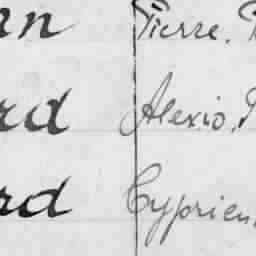 an Pierre.
rd Alexis.
rd Cyprien